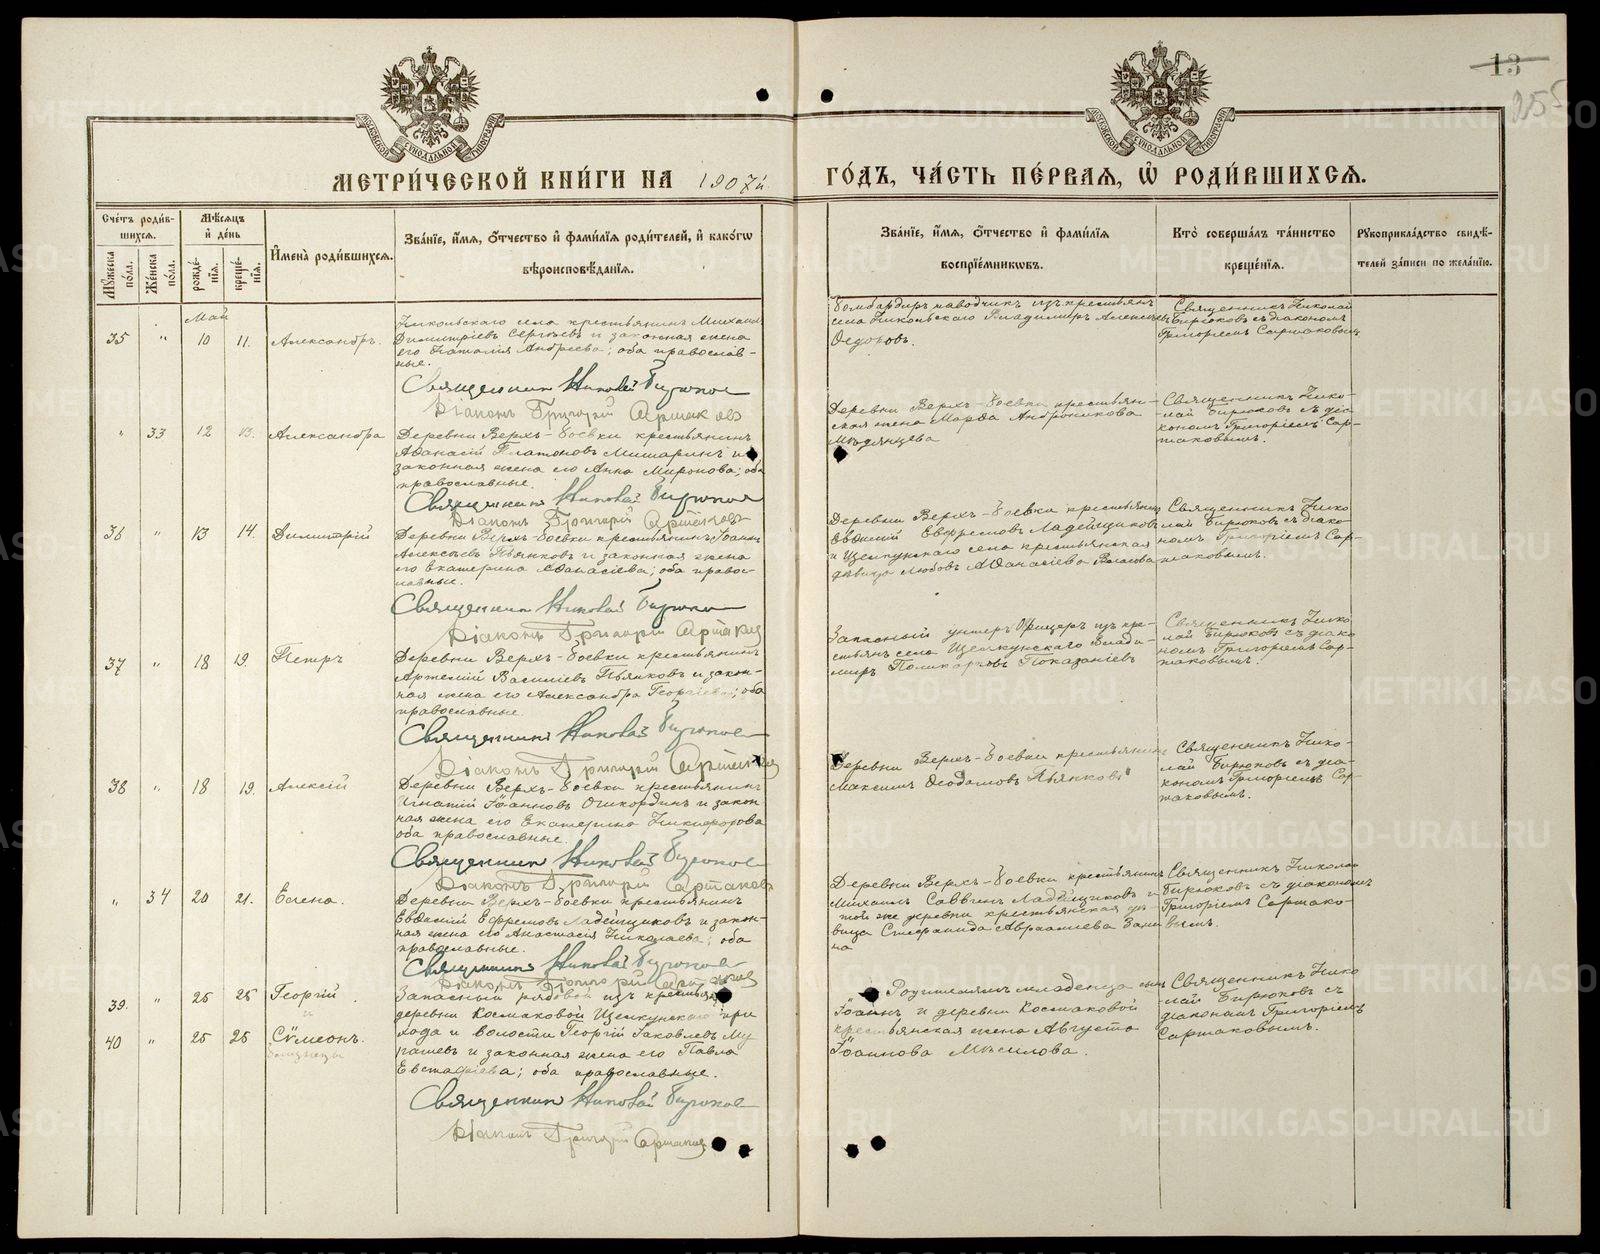 13
255
МЕТРИ́ЧЕСКОЙ КНИ́ГИ НА 1907й. ГО́ДЪ, ЧА́СТЬ ПЕ́РВАѦ, Ѡ҆ РОДИ́ВШИХСѦ.
Сче́тъ роди́в-
шихсѧ.
Мꙋ́жеска по́ла.
Же́нска по́ла.
Мѣ́сѧцъ и҆ де́нь
рожде́-
нїѧ.
креще́-
нїѧ.
И҆мена̀ роди́вшихсѧ.
Зва́нїе, и҆́мѧ, ѻ҆́тчество и҆ фами́лїѧ роди́телей, и҆ како́гѡ
вѣроисповѣ́данїѧ.
Зва́нїе, и҆́мѧ, ѻ҆́тчество и҆ фами́лїѧ
воспрїе́мникѡвъ.
Кто̀ соверша́лъ та́инство
креще́нїѧ.
Рꙋкоприкла́дство свидѣ́-
телей за́писи по жела́нїю.
Май
35 " 10 11. Александръ.
Никольскаго села крестьянинъ Михаилъ
Димитріевъ Сергѣевъ и законная жена
его Наталія Андреева; оба православ-
ные.
Священникъ Николай Бирюков
Діаконъ Григорій Сартаков
Бомбардиръ наводчикъ изъ крестьянъ
села Никольскаго Владимиръ Алексѣевъ
Ѳедоровъ.
Священникъ Николай
Бирюковъ съ діакономъ
Григоріемъ Сартаковымъ
" 33 12 13. Александра
Деревни Верхъ-Боевки крестьянинъ
Аѳанасій Платоновъ Мишаринъ и
законная жена его Анна Миронова; оба
православные.
Священникъ Николай Бирюков
Діаконъ Григорій Сартаковъ
Деревни Верхъ-Боевки крестьян-
ская жена Марѳа Андроникова
Мѣдянцева
Священникъ Нико-
лай Бирюковъ съ діа-
кономъ Григоріемъ Сар-
таковымъ.
36 " 13 14. Димитрій
Деревни Верхъ-Боевки крестьянинъ Іоаннъ
Алексѣевъ Пьянковъ и законная жена
его Екатерина Аѳанасіева; оба право-
славные.
Священникъ Николай Бирюков
Діаконъ Григорій Сартаков
Деревни Верхъ-Боевки крестьянинъ
Евѳимій Евфремовъ Ладейщиковъ
и Щелкунскаго села крестьянская
дѣвица Любовь Аѳанасіева Власова
Священникъ Нико-
лай Бирюковъ съ діако-
номъ Григоріемъ Сар-
таковымъ.
37 " 18 19. Петръ
Деревни Верхъ-Боевки крестьянинъ
Артемій Василіевъ Пьянковъ и закон-
ная жена его Александра Георгіева; оба
православные.
Священникъ Николай Бирюков
Діаконъ Григорій Сартаков
Запасный унтеръ офицеръ изъ кре-
стьянъ села Щелкунскаго Влади-
миръ Поликарповъ Показаніевъ
Священникъ Нико-
лай Бирюковъ съ діако-
номъ Григоріемъ Сар-
таковымъ.
38 " 18 19. Алексій
Деревни Верхъ-Боевки крестьянинъ
Игнатій Іоанновъ Ошкординъ и закон
ная жена его Екатерина Никифорова
оба православные.
Священникъ Николай Бирюков
Діаконъ Григорій Сартаковъ
Деревни Верхъ-Боевки крестьянинъ
Максимъ Ѳеодотовъ Пьянковъ
Священникъ Нико-
лай Бирюковъ съ діа-
кономъ Григоріемъ Сар-
таковымъ.
" 34 20 21. Елена.
Деревни Верхъ-Боевки крестьянинъ
Евѳимій Ефремовъ Ладейщиковъ и закон-
ная жена его Анастасія Николаева; оба
православные.
Священникъ Николай Бирюков
Діаконъ Григорій Сартаков
Деревни Верхъ-Боевки крестьянинъ
Михаилъ Саввинъ Ладейщиковъ и
той же деревни крестьянская дѣ-
вица Стефанида Авраамиева
на
Священникъ Николай
Бирюковъ съ діакономъ
Григоріемъ Сартако-
вымъ.
39. " 25 25 Георгій
и
40 " 25 25 Сѵмеонъ.
близнецы
Запасный рядовой изъ крестьянъ
деревни Космаковой Щелкунскаго при
хода и волости Георгій Іаковлевъ Му
рашевъ и законная жена его Павла
Евстафіева; оба православные.
Священникъ Николай Бирюков
Діаконъ Григорій Сартаков
Родителямъ младенца сынъ
Іоаннъ и деревни Космаковой
крестьянская жена Августа
Іоаннова Мѣхилова.
Священникъ Нико-
лай Бирюковъ съ
діакономъ Григоріемъ
Сартаковымъ.
METRIKI.GASO-URAL.RU